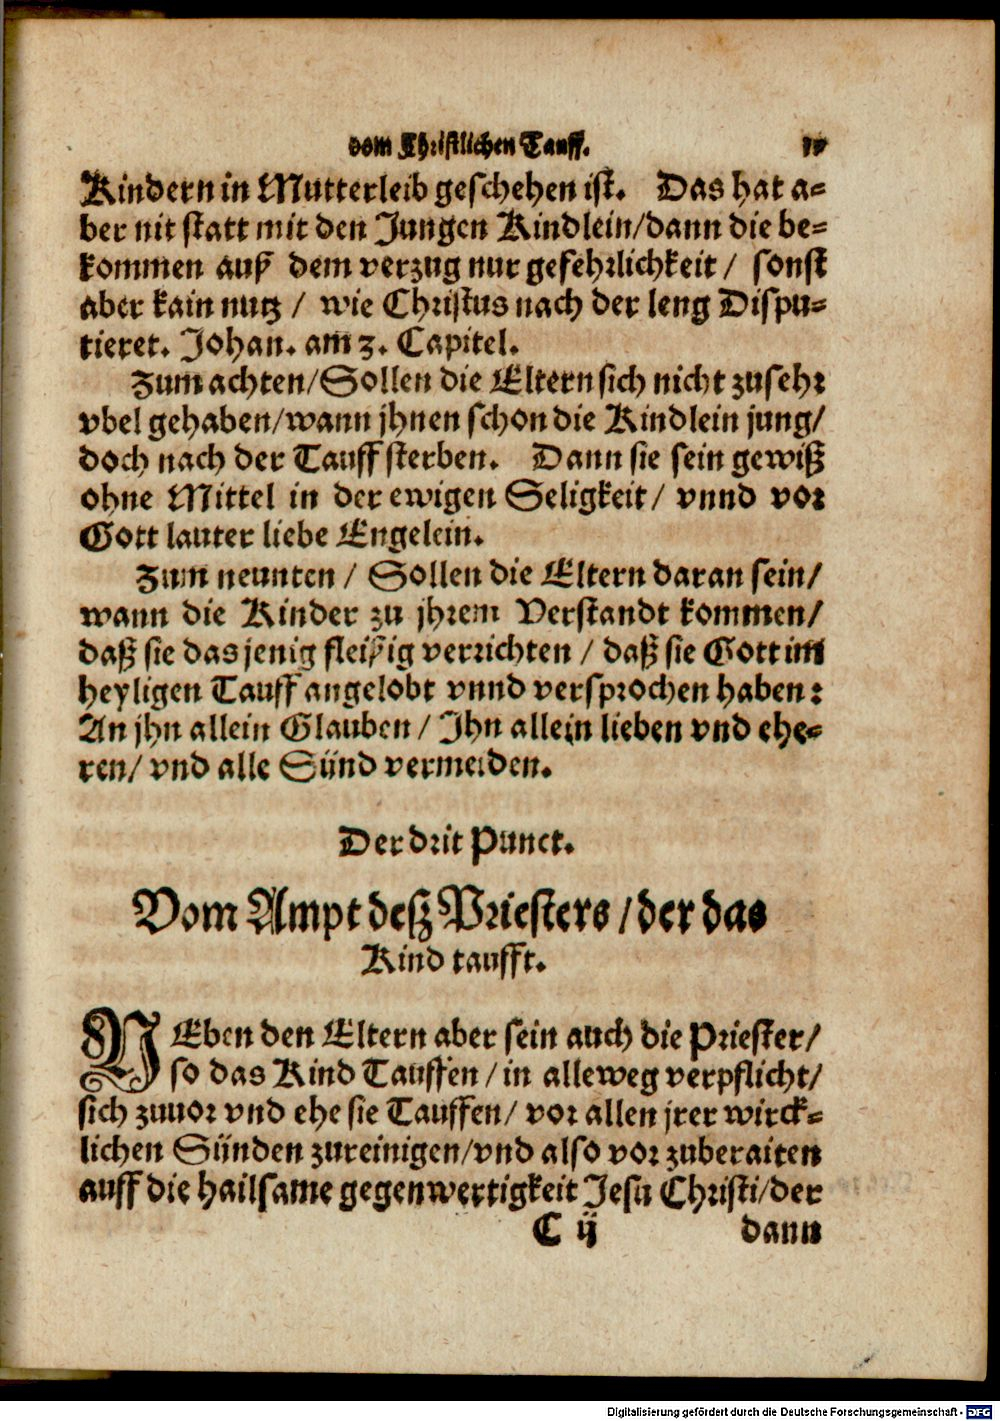 vom Christlichen Tauff.
Kindern in Mutterleib geschehen ist. Das hat a-
ber nit statt mit den Jungen Kindlein/dann die be-
kommen auß dem verzug nur gefehrlichkeit / sonst
aber kain nutz / wie Christus nach der leng Dispu-
tieret. Johan. am 3. Capitel.
Zum achten/Sollen die Eltern sich nicht zusehr
vbel gehaben/wann jhnen schon die Kindlein jung/
doch nach der Tauff sterben. Dann sie sein gewiß
ohne Mittel in der ewigen Seligkeit/ vnnd vor
Gott lauter liebe Engelein.
Zum neunten / Sollen die Eltern daran sein/
wann die Kinder zu jhrem Verstandt kommen/
daß sie das jenig fleißig verrichten / daß sie Gott im
heyligen Tauff angelobt vnnd versprochen haben:
An jhn allein Glauben / Ihn allein lieben vnd ehe-
ren/ vnd alle Sünd vermeiden.
Der drit Punct.
Vom Ampt deß Priesters / der das
Kind taufft.
NEben den Eltern aber sein auch die Priester/
so das Kind Tauffen / in alleweg verpflicht/
sich zuuor vnd ehe sie Tauffen/ vor allen jrer wirck-
lichen Sünden zureinigen/vnd also vor zuberaiten
auff die hailsame gegenwertigkeit Jesu Christi/der
C ij dann
Digitalisierung gefördert durch die Deutsche Forschungsgemeinschaft - DFG